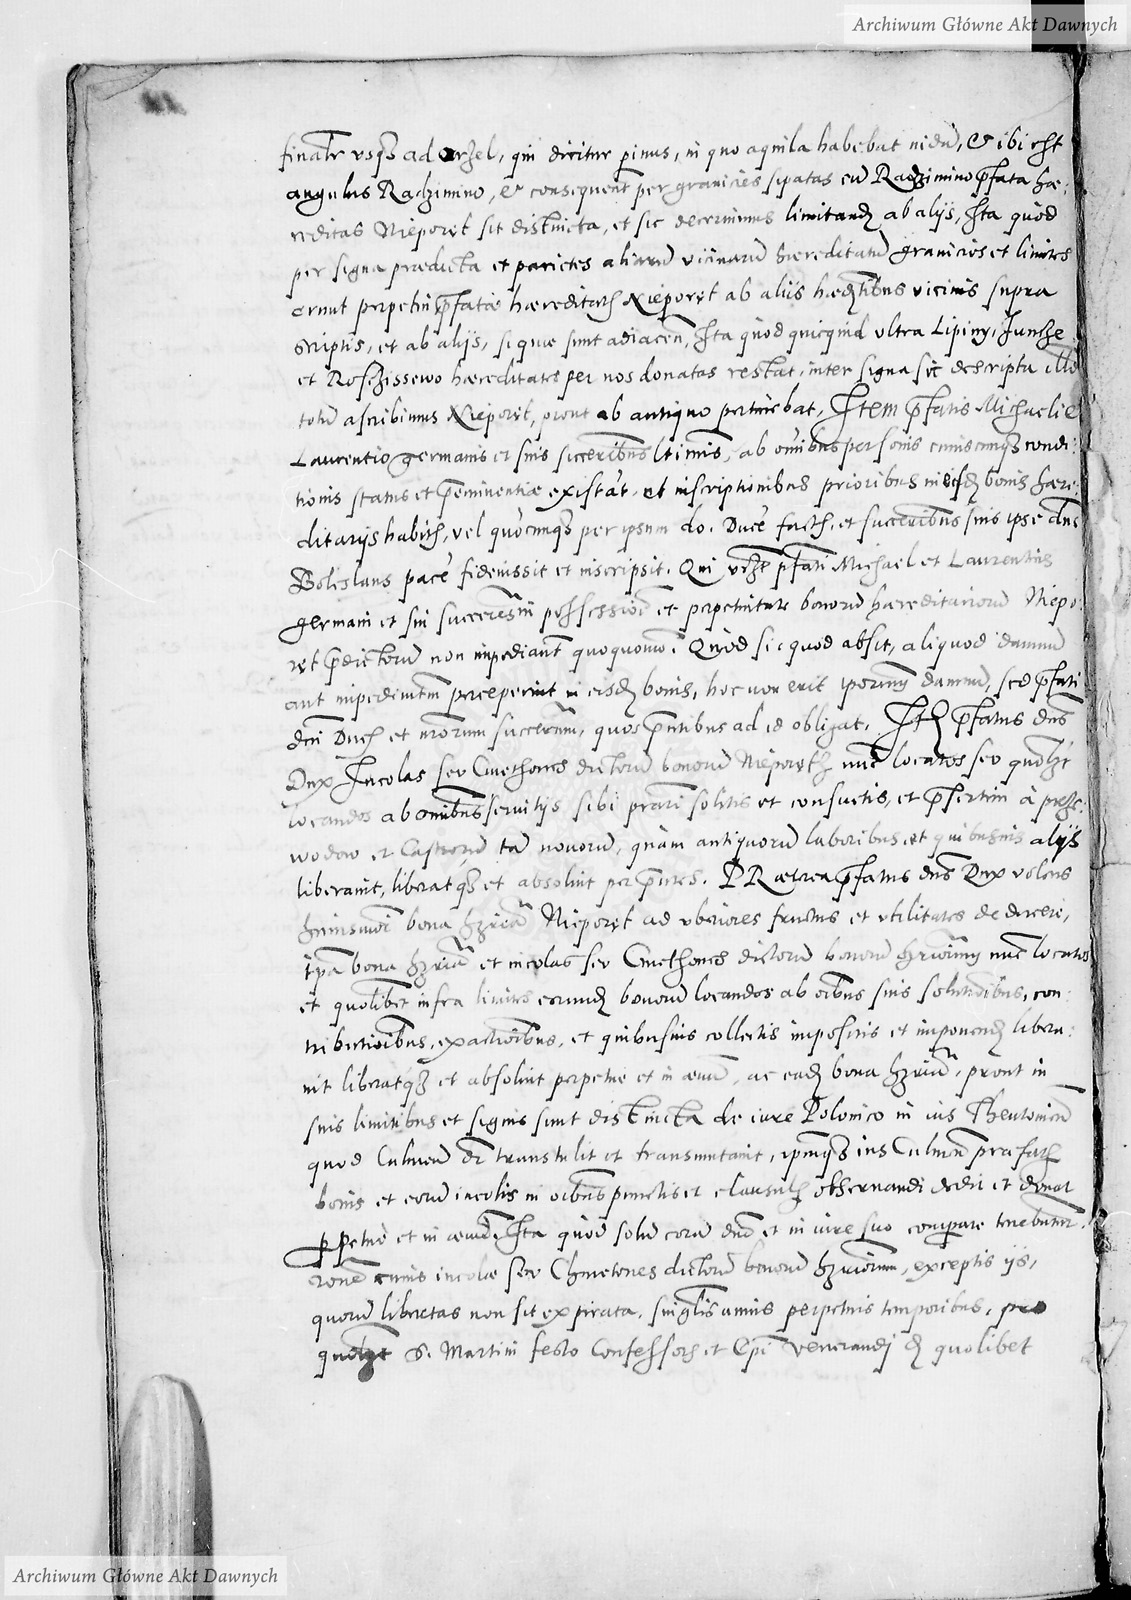 Archiwum Główne Akt Dawnych
finalr usqȝ ad orzel, qui dicitur pinus, in quo aquila habebat nidū, & ibi est
angulus Radzimino, & consequent per granicies sipatas cū Radzimino pfata hæ:
reditas Nieporęt sit distincta, et sic decernimus limitandȝ ab alijs, Ita quòd
per signa prædicta et parietes aliarū vicinarū hæreditatū granicies et limites
erunt perpetui pfatæ hæreditatȝ Nieporęt ab aliis hædȝtibus vicinis supra
scriptis, et ab alijs, si quæ sunt adiacen, Ita quòd quicquid ultra Lipiny,
et hæreditates per nos donatas restat, inter signa sic descripta illd
totū ascribimus Nieporęt, prout ab antiquo pertinebat, Item pfatis Michaeli e
Laurentio germanis et suis succeribus ltimis, ab oīnibus personis cuiuscunqȝ condi:
tionis status et peminentiæ existāt, et inscriptionibus prioribus in eisdȝ bonis hære:
ditarijs habitȝ, vel quòcunqȝ per ipsum do. Ducē factȝ, et succeribus suis ipse dns
Boleslaus pacē fideiussit et inscripsit. Qui pfati Michael et Laurentius
germani et sui possessiōe et perpetuitate bonorū hæreditariorū Niepo:
ręt pdictorū non impediant quoquomōi Quòd si quod absit, aliquod damnū
aut impedimtm perceperint in eisdȝ bonis, hoc non erit damnū, sed pfati
dni Ducȝ et succerum, quos pntibus ad id obligat, Itȝ pfatus dns
Dux Incolas seu Cmethones dictorū bonorū Nieporętȝ nūc locatos seu quolȝt
locandos ab omibus seruitijs sibi solitis et consuetis, et psertim à przę:
wodow et Castrorū tā nouorū, quàm antiquorū laboribus et quibusuis alijs
liberauit, liberatqȝ et absoluit per pntes. PRætrea pfatus dns Dux volens
huiusmōi bona hȝria Nieporęt ad vberiores fructus et vtilitates deducere,
ipa bona hȝria et incolas seu Cmethones dictorū bonorū nūc locatos
et quolibet infra limites eorundȝ bonorū locandos ab oībus suis solutiōibus, con:
tributiōibus, exactiōibus, et quibusuis collectis impositis et imponendȝ libera:
uit liberatqȝ et absoluit perpetue et in æuū, ac eadȝ bona hȝria, prout in
suis limitibus et signis sunt distincta de iure Polonico in ius Theutonicū
quod Culmen dr transtulit et transmutauit, ipmqȝ ius Culmen præfatȝ
bonis et eorū incolis in oībus punctis et clausulȝ obseruandi dedit et donat
perpetue et in æuū, Ita quòd solū corā dnō et in iure suo comparere tenebuntur.
ronē cuius incolæ seu Chmetones dictorū bonorū hȝriorum, exceptis ijs,
quorū libertas non sit expirata, singlis annis perpetuis temporibus, pro
quolȝt S. Martini festo Confessorȝ et Epi venerandi dȝ quolibet
Archiwum Główne Akt Dawnych